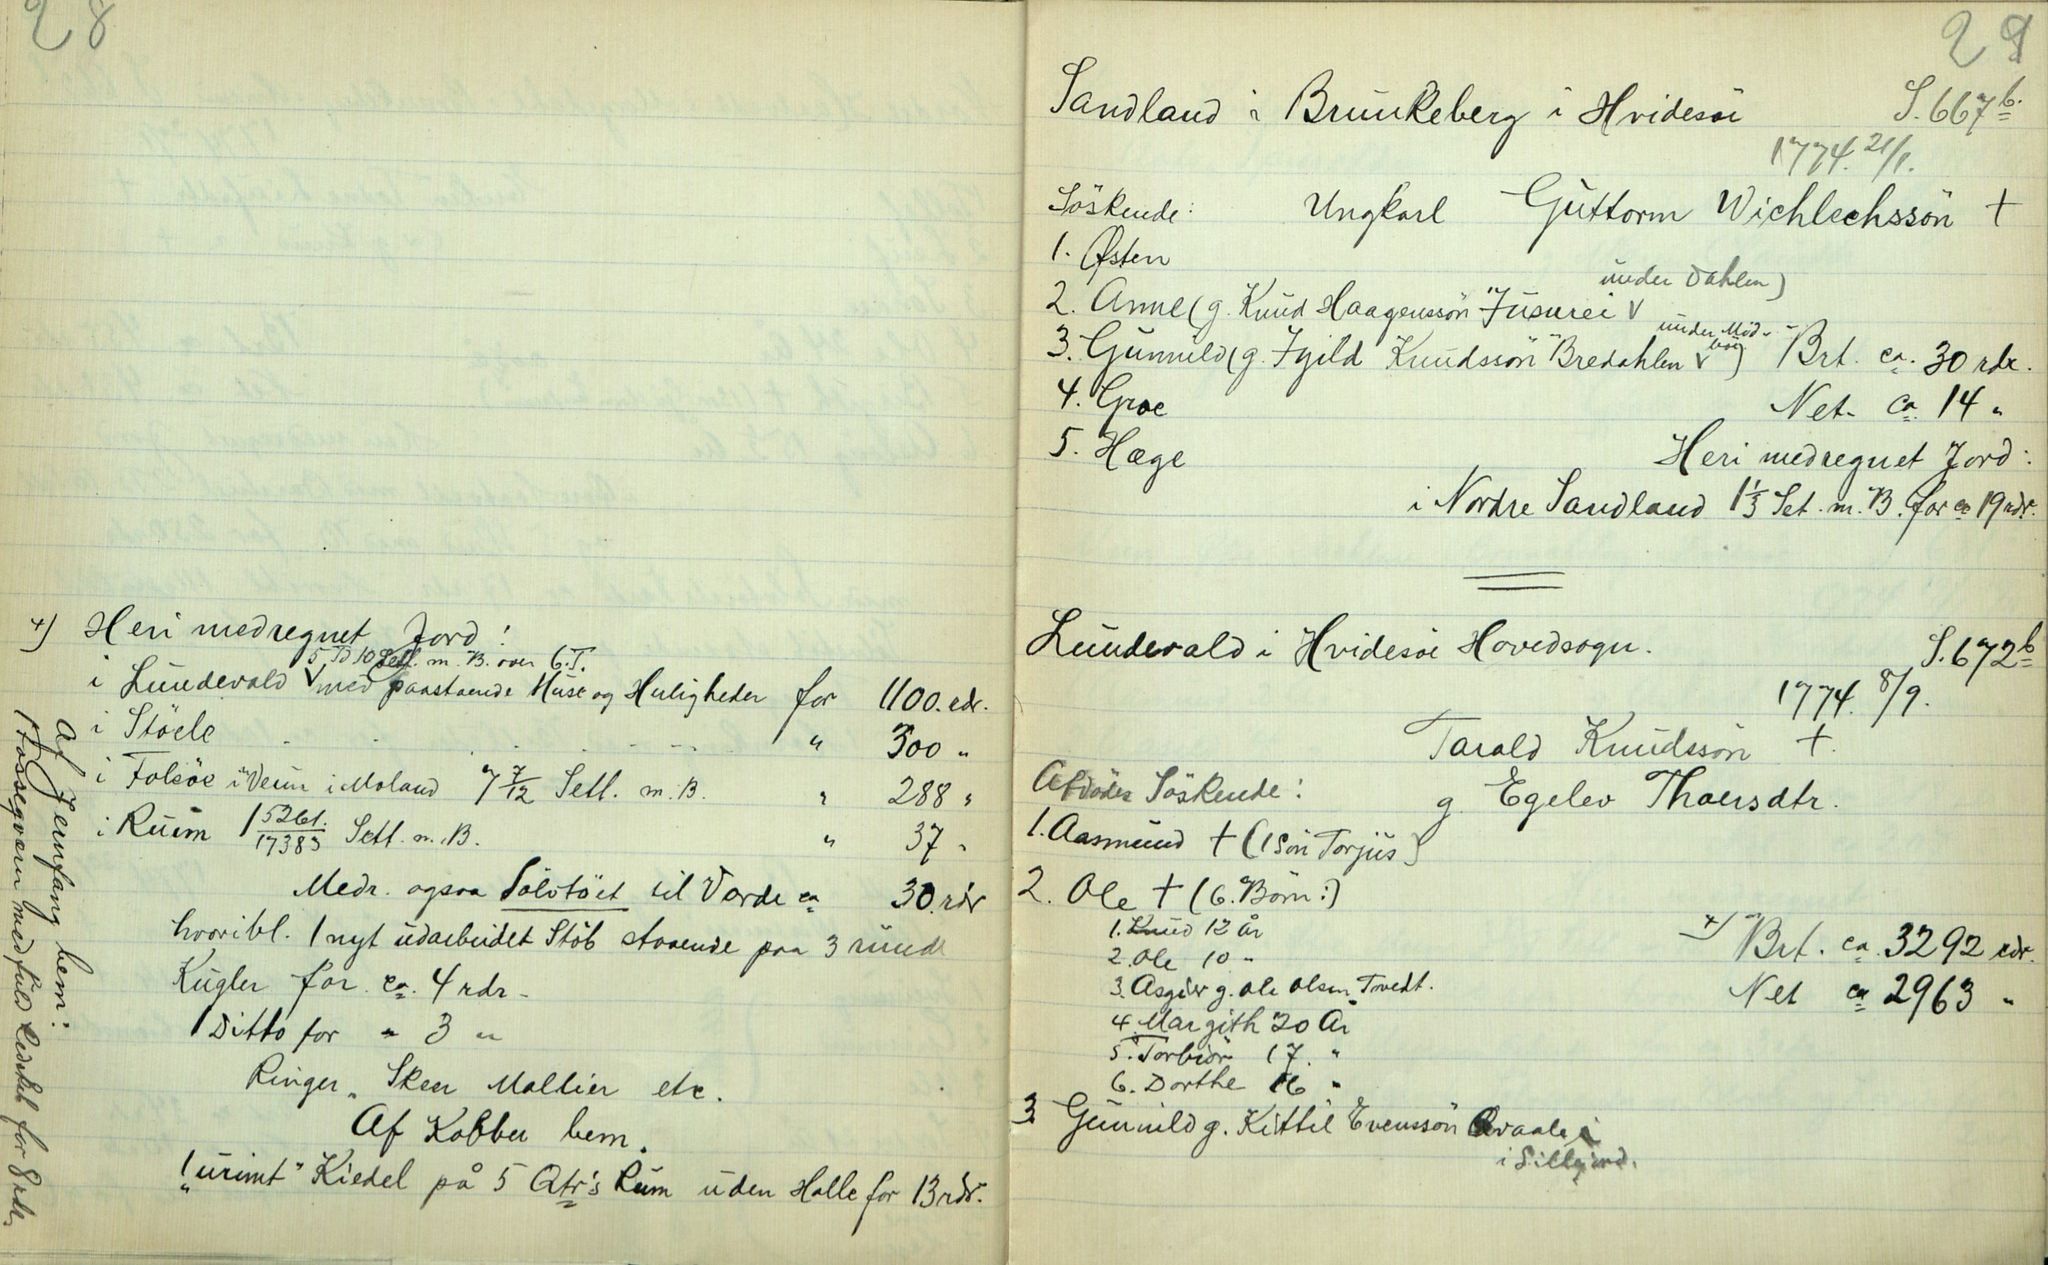 28
+) Heri medregnet Jord:
5 Td 10 Setl. m. B. over 6.T.
i Lundevald V med paastaende Huse og Herligheder for 1100. rdr.
i Stöele " 300 "
i Folsöe i "Veum i Moland 7 7/12 Setl. m. B. " 288 "
i Ruim 1 5261/17383 Setl. m. B. " 37 "
Medr. ogsaa Sölvtöiet til Verdi ca 30 rdr
hvoribl. 1 nyt udarbeidet Stöb staaende paa 3 runde
Kugler for ca. 4 rdr.
1 Ditto for " 3 "
Ringer, Skeer Mallier etc.
Af Kobber bem.
1 "urimt" Kiedel på 5 Qtr's Rum uden Halle for 13 rdr.
Af Jernfang bem:
1 Fosseqvern med fuld Redskab for 8 rdr.
29
Sandland i Brunkeberg i Hvidesöe S. 667 b.
1774. 21/1.
Söskende: Ungkarl Guttorm Wichlechssön +
1. Østen
under Dahlen)
2. Anne (g. Knud Haagenssön "Jusurei V
under Möd-
böe
3. Gunnild (g. Jgild Knudssön "Bredahlen V ) Brt. ca. 30 rdr.
4. Groe Net. ca. 14 "
5. Hæge Heri medregnet Jord:
i Nordre Sandland 1 1/3 Set. m. B. for ca 19 rdr.
Lundevald i Hvidesöe Hovedsogn. S. 672 b
1774. 8/9.
Tarald Knudssön +.
Afdödes Söskende: g. Egelev Thoersdtr.
1. Aasmund + (1 Sön Torjus)
2. Ole + (6. Börn:)
1. Knud 12 år
2. Ole 10 "
+) Brt. ca. 3292 rdr.
3. Asgier g. Ole Olsen Tvedt.
Net ca 2963 "
4. Margith 20 År
5. Torbiör 17. "
6. Dorthe 16 "
3 Gunnild g. Kittil Evenssön Qvaale
i Sillejord.